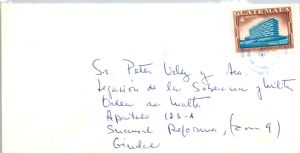 GUATEMALA
Sr. Peter Vilez y Sra.
Legación de la Soberana y Milit
Orden de Malta
Apartado 123-A
Sucursal Reforma, (zona 9)
Ciudad